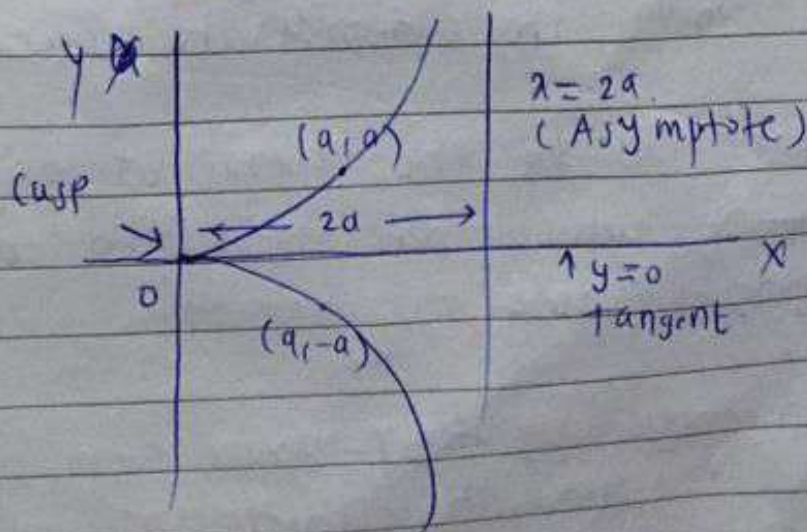 y
x = 2a
(Asymptote)
(a, a)
Cusp
2a
0
↑ y = 0
X
Tangent
(a, -a)